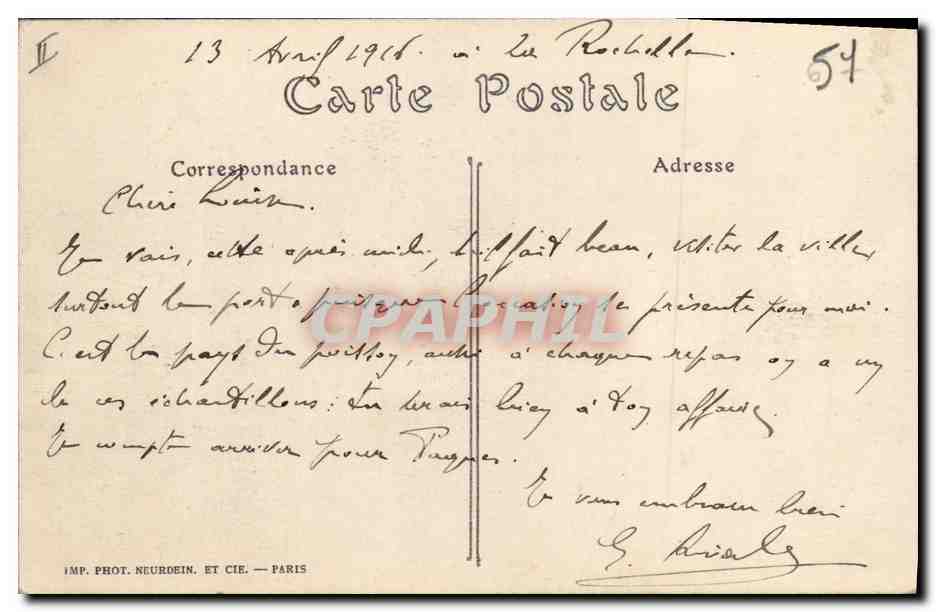 II
13 Avril 1916 à La Rochelle.
57
Carte Postale
Correspondance
Adresse
Chère Louise.
Je vais, cette après midi, il fait beau, visiter la ville,
surtout le port, puisque l'occasion se présente pour moi.
C'est le pays du poisson, aussi à chaque repas on a un
de ces échantillons : tu serais bien à ton affaire.
Je compte arriver pour Paques.
Je vous embrasse bien
G.
CPAPHIL
IMP. PHOT. NEURDEIN. ET CIE. — PARIS